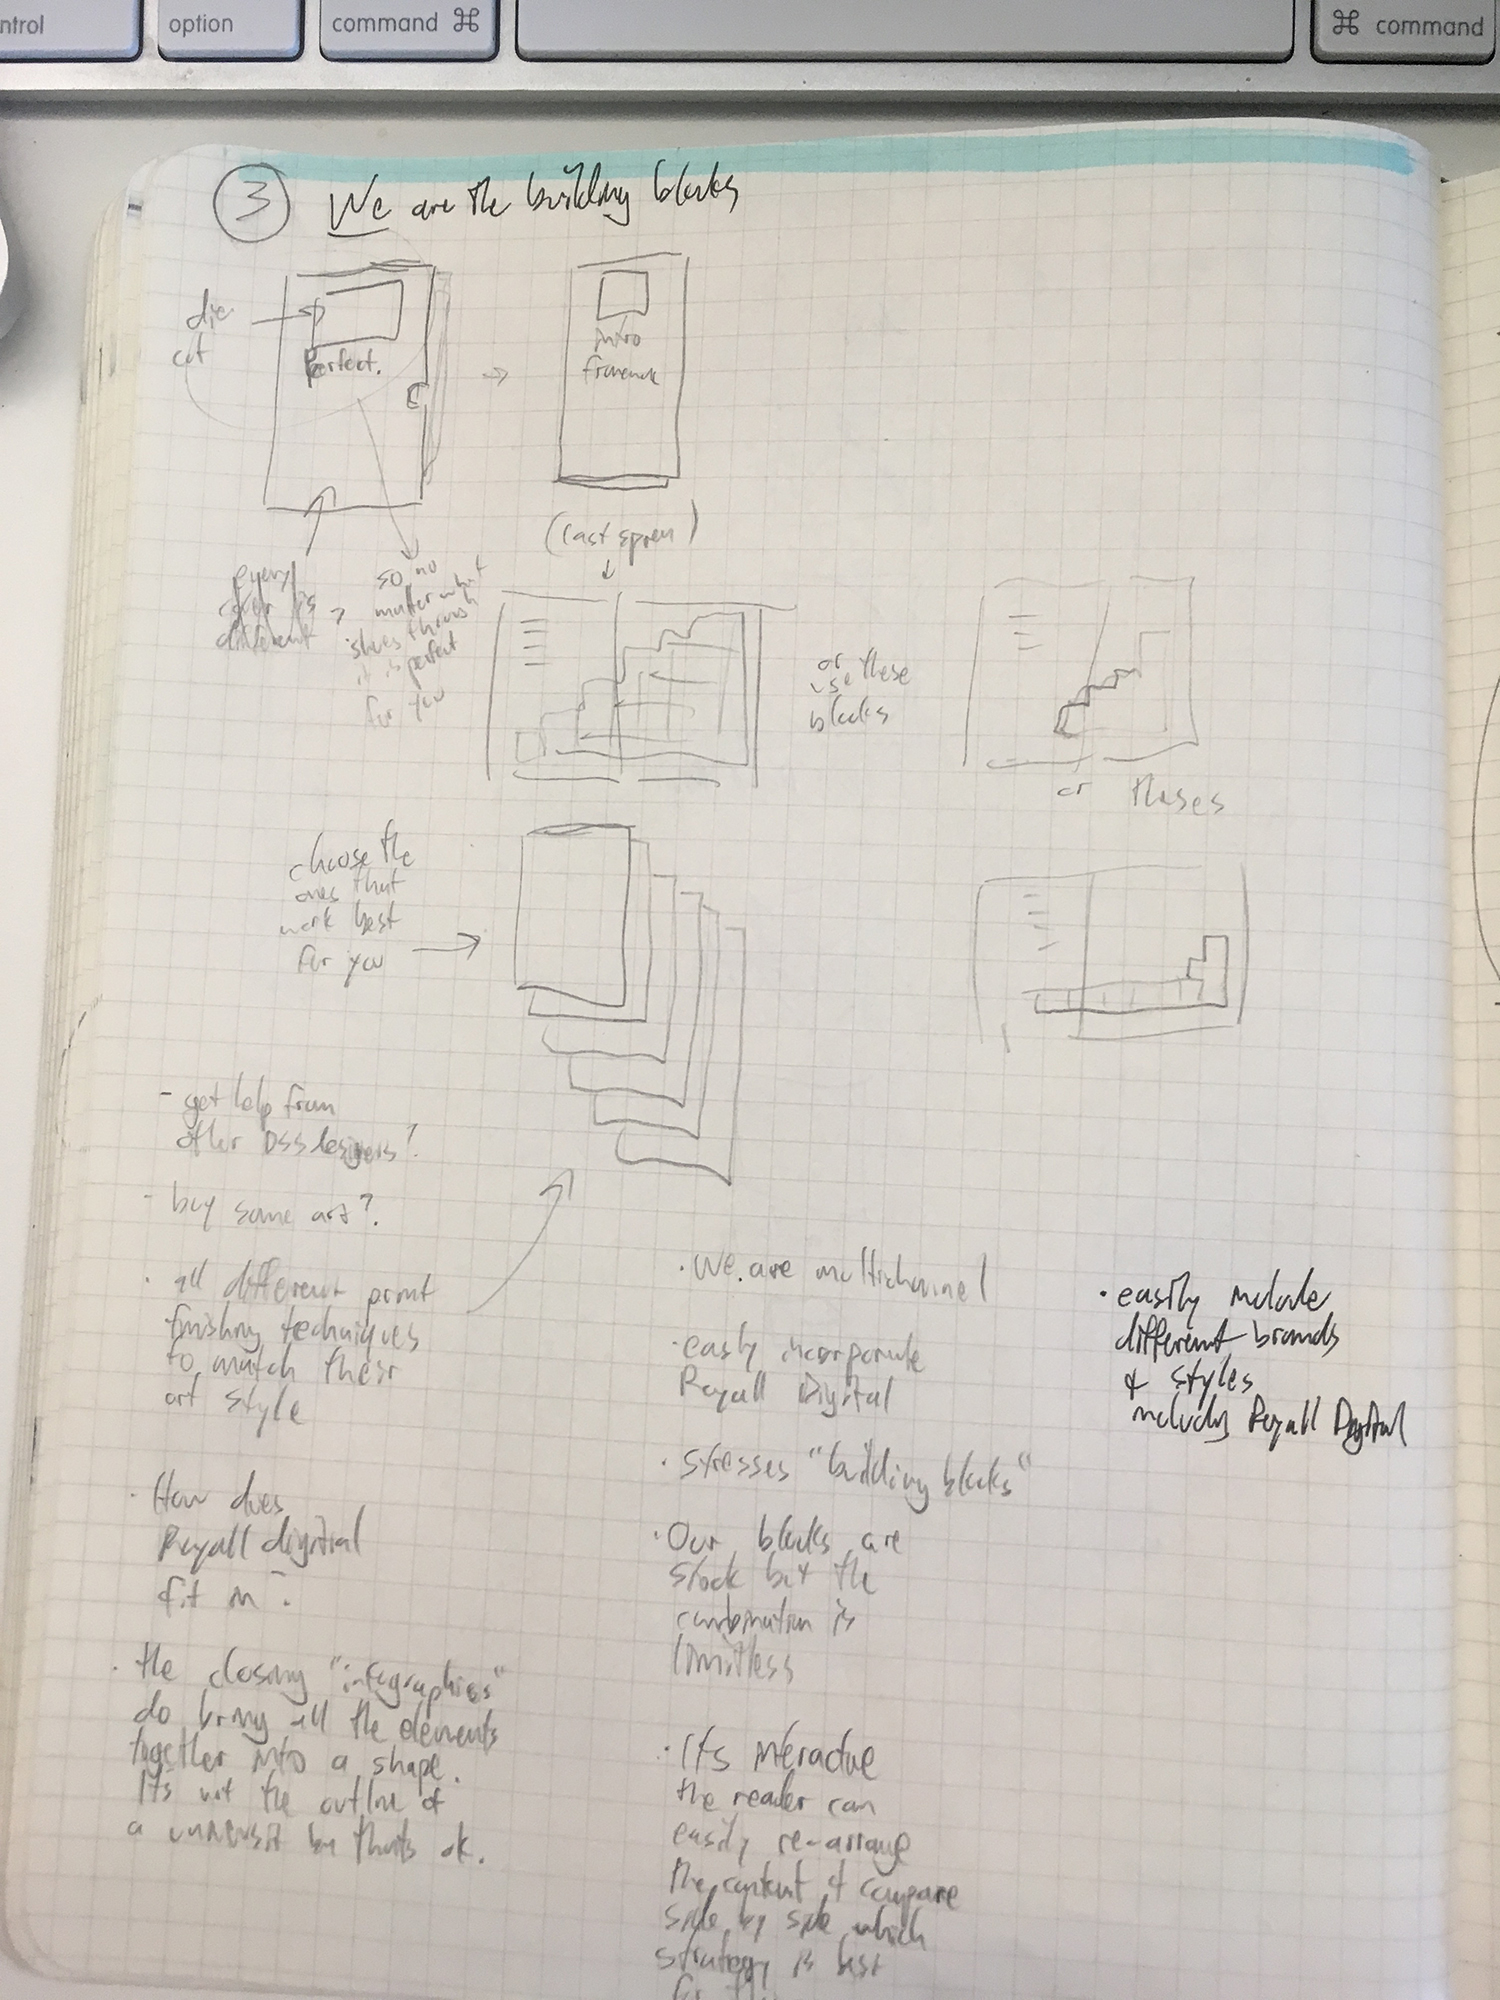 ntrol
option
command ⌘
⌘ command
3 We are the building blocks
die
cut
Perfect.
intro
(last spread)
every
cover is
different
so no
matter what
shows through
it is perfect
for you
or
use these
blocks
or theses
choose the
ones that
work best
for you
- get help from
other DSS designers?
- buy some art?
· all different print
finishing techniques
to match their
art style
· How does
Royall digital
fit in?
· the closing "infographics"
do bring all the elements
together into a shape.
Its not the outline of
a but thats ok.
· We are multichannel
· easly incorporate
Royall Digital
· stresses "building blocks"
· Our blocks are
stock but the
combination is
limitless
· Its interactive
the reader can
easily re-arrange
the content & compare
side by side which
strategy is best
for
· easily include
different brands
& styles
including Royall Digital